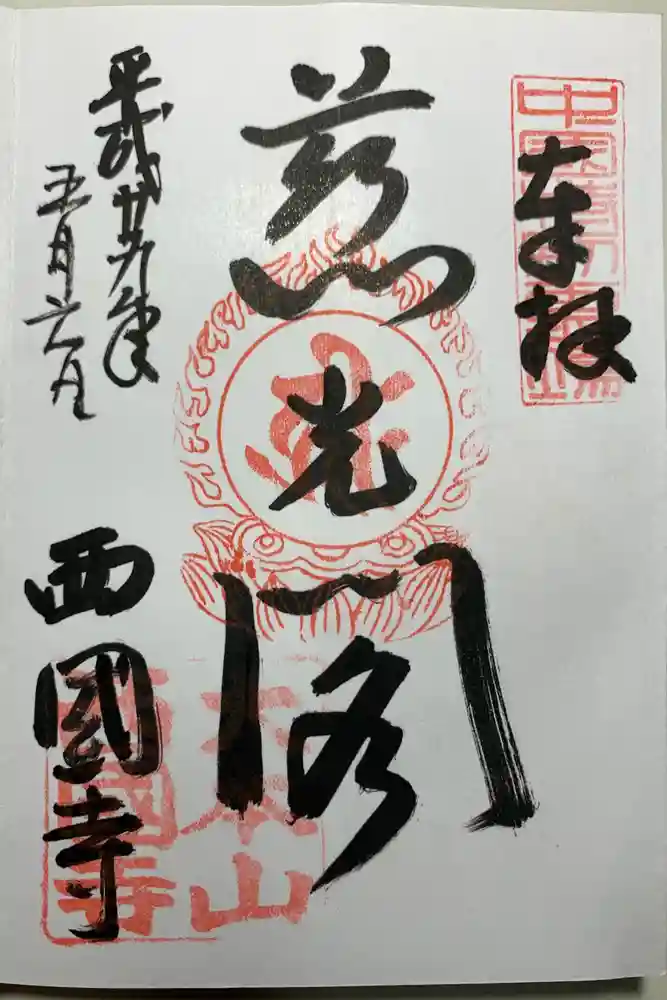 奉拝
慈光閣
平成廿九年
五月六日
西國寺
大本山
西國寺